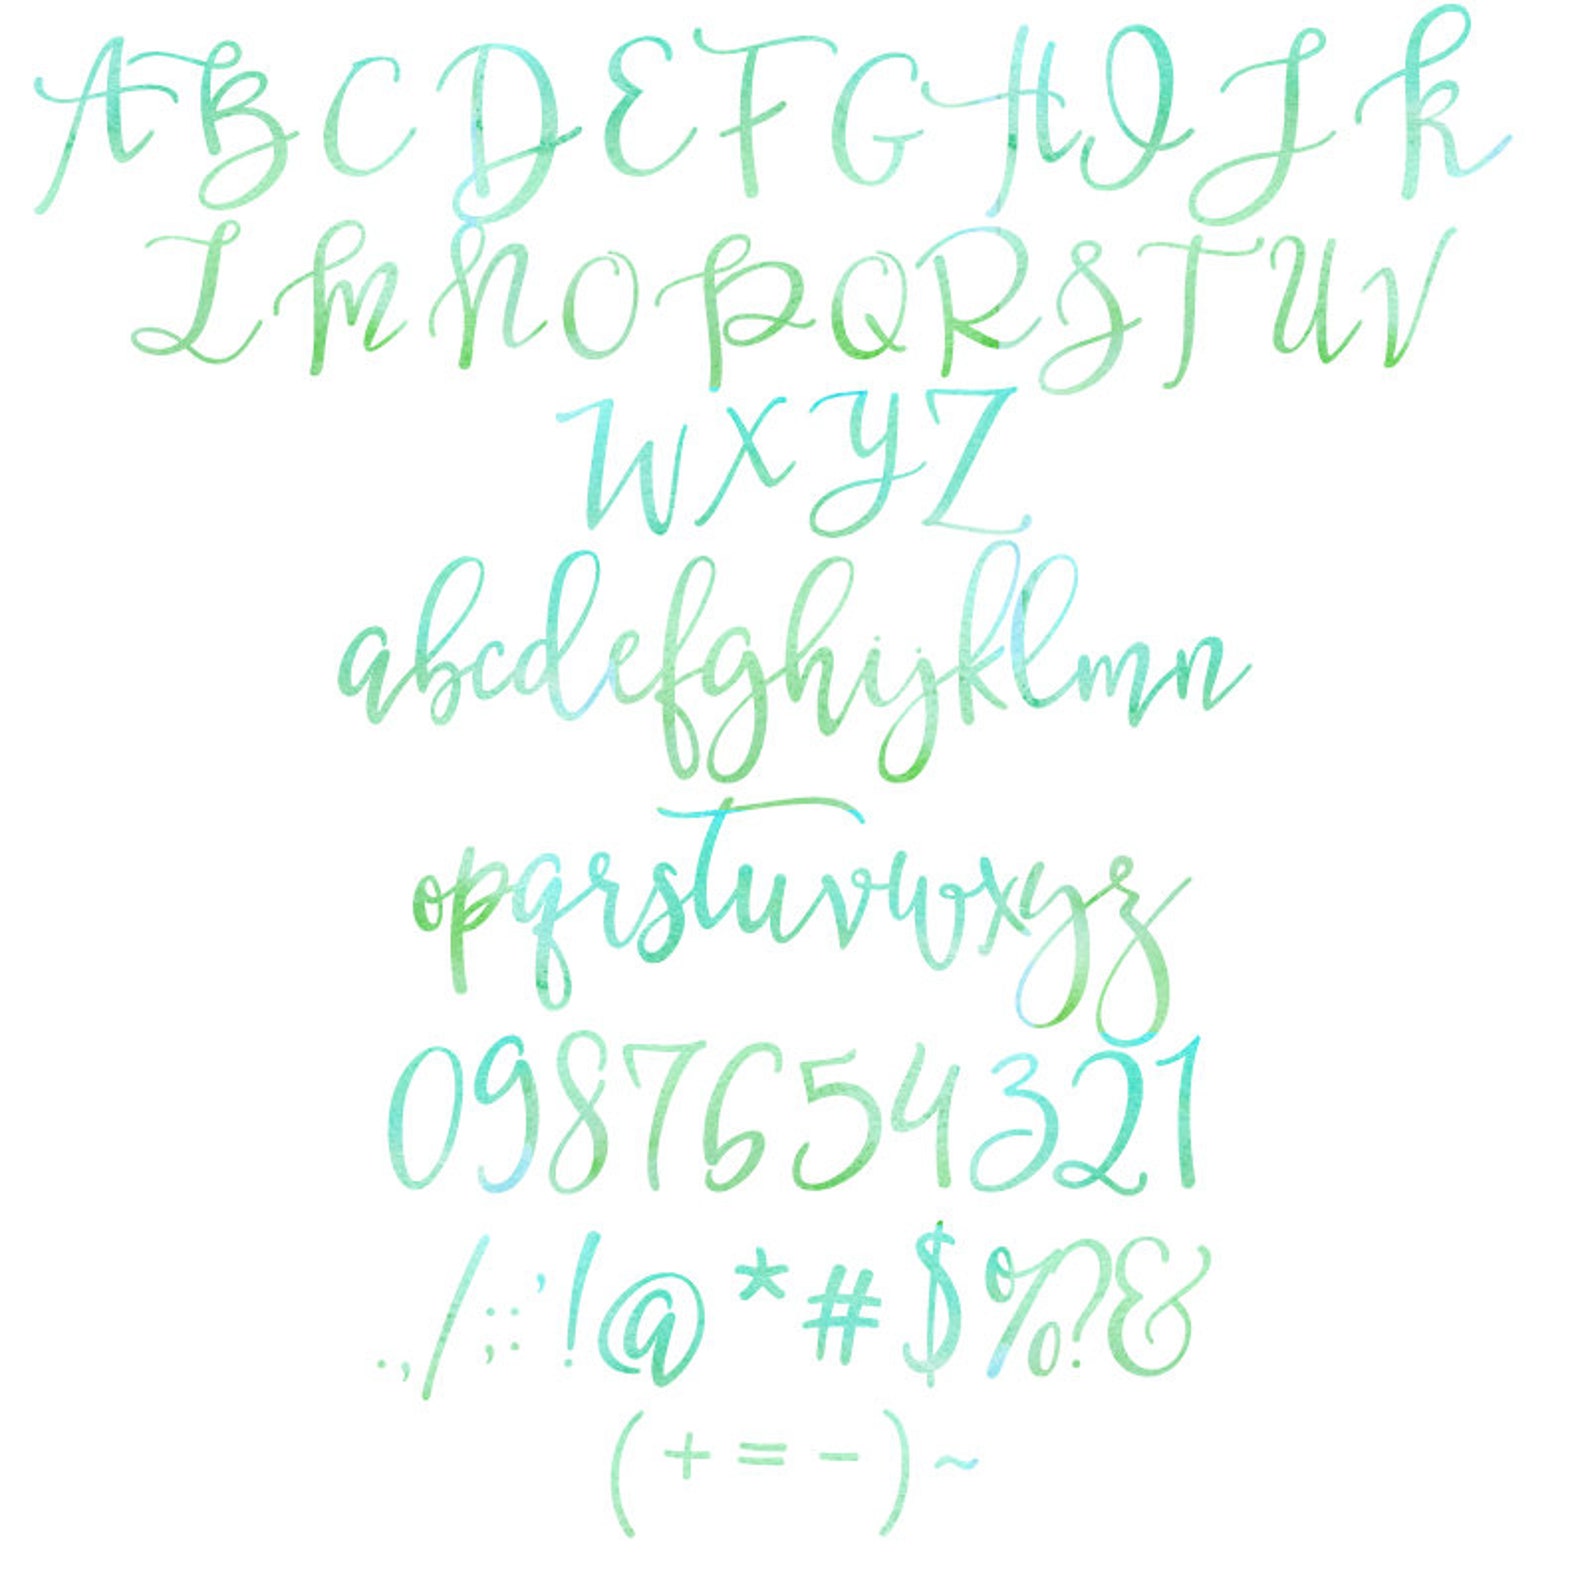 A B C D E F G H I J K
L M N O P Q R S T U V
W X Y Z
abcdefghijklmn
opqrstuvwxyz
0987654321
.,/;:'!@*#$%?&
(+=-)~